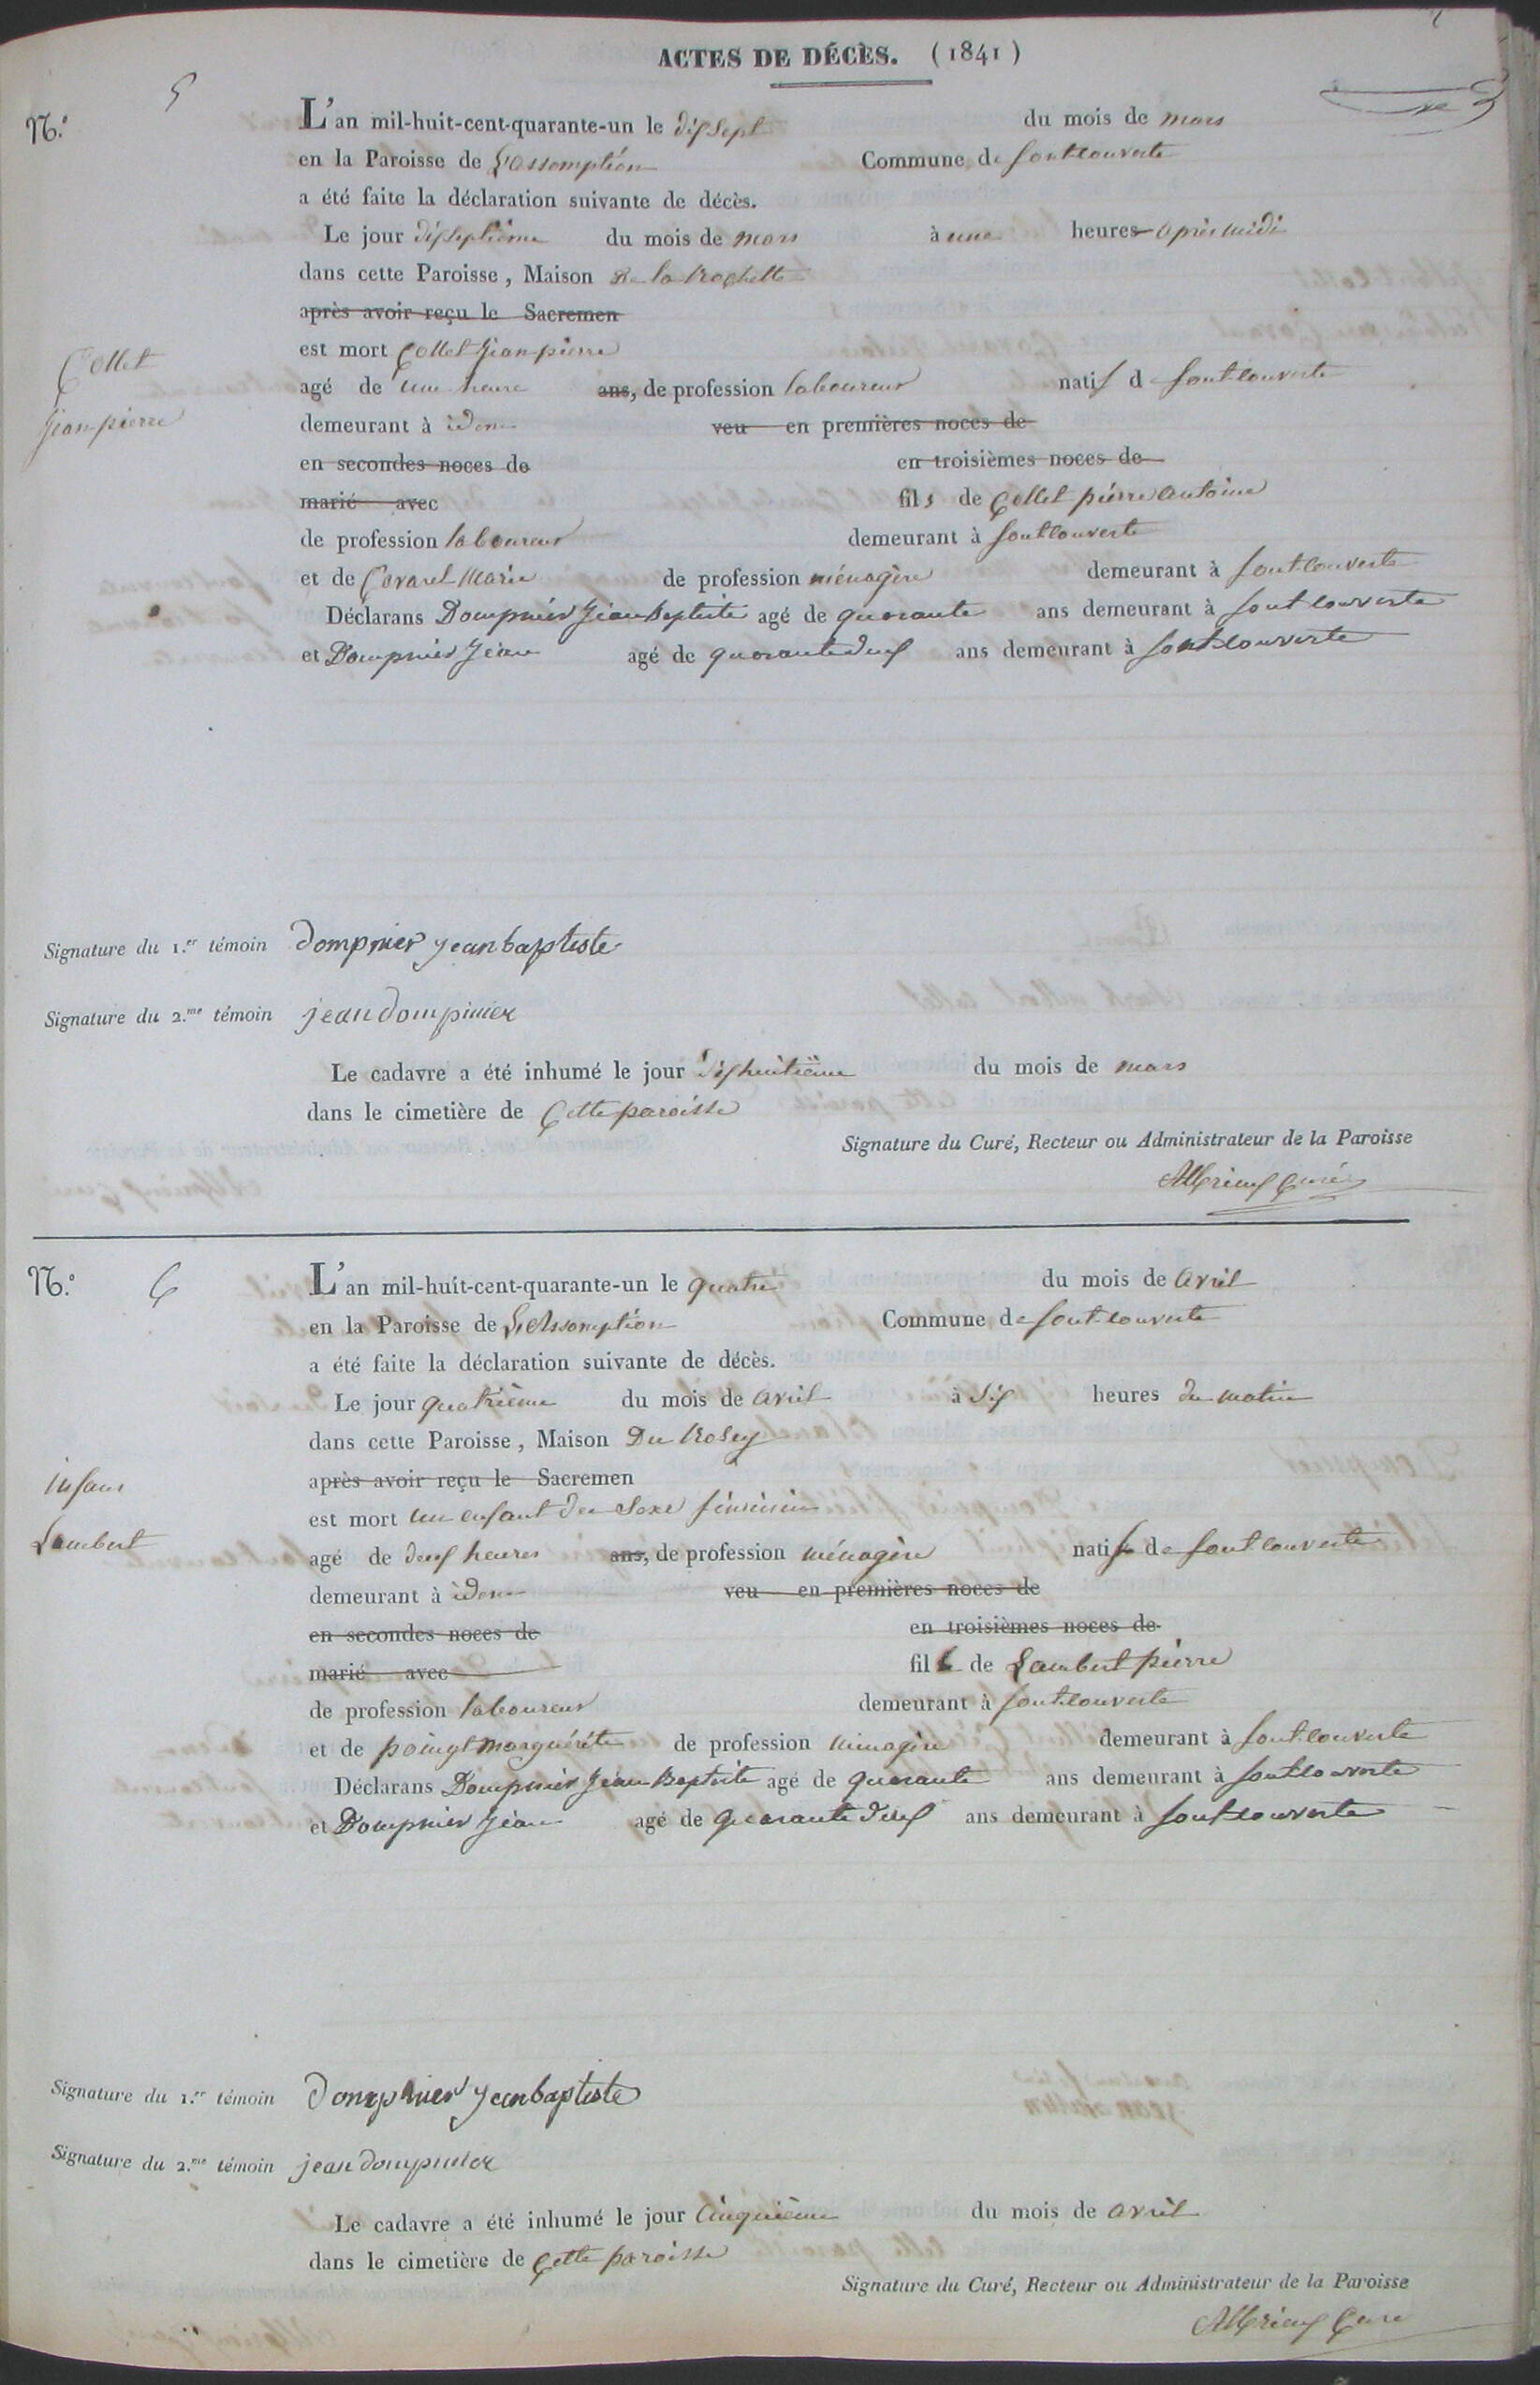 ACTES DE DÉCÈS. (1841)
N.° 5
L'an mil-huit-cent-quarante-un le dissept du mois de mars
en la Paroisse de L'assomption Commune de fontcouverte
a été faite la déclaration suivante de décès.
Le jour disseptième du mois de mars à une heures après midi
dans cette Paroisse, Maison De la Rochette
après avoir reçu le Sacremen
est mort Collet Jean pierre
Collet
Jean pierre
agé de une heure ans, de profession laboureur natif de fontcouverte
demeurant à idem veu en premières noces de
en secondes noces de en troisièmes noces de
marié avec fils de Collet pierre antoine
de profession laboureur demeurant à fontcouverte
et de Covarel Marie de profession ménagère demeurant à fontcouverte
Déclarans Dompnier Jean Baptiste agé de quarante ans demeurant à fontcouverte
et Dompnier Jean agé de quarante deux ans demeurant à fontcouverte
Signature du 1.er témoin dompnier jean baptiste
Signature du 2.me témoin jean dompnier
Le cadavre a été inhumé le jour dix huitième du mois de mars
dans le cimetière de Cette paroisse
Signature du Curé, Recteur ou Administrateur de la Paroisse
Albrieux Curé
N.° 6
L'an mil-huit-cent-quarante-un le quatre du mois de avril
en la Paroisse de L'Assomption Commune de fontcouverte
a été faite la déclaration suivante de décès.
Le jour quatrième du mois de avril à six heures du matin
dans cette Paroisse, Maison Du Rosey
après avoir reçu le Sacremen
est mort un enfant du Sexe féminin
infans
Lambert
agé de deux heures ans, de profession ménagère native de fontcouverte
demeurant à idem veu en premières noces de
en secondes noces de en troisièmes noces de
marié avec fille de Lambert pierre
de profession laboureur demeurant à fontcouverte
et de poingt Marguérite de profession ménagère demeurant à fontcouverte
Déclarans Dompnier Jean Baptiste agé de quarante ans demeurant à fontcouverte
et Dompnier Jean agé de quarante deux ans demeurant à fontcouverte
Signature du 1.er témoin dompnier jean baptiste
Signature du 2.me témoin jean dompnier
Le cadavre a été inhumé le jour Cinquième du mois de avril
dans le cimetière de Cette paroisse
Signature du Curé, Recteur ou Administrateur de la Paroisse
Albrieux Curé